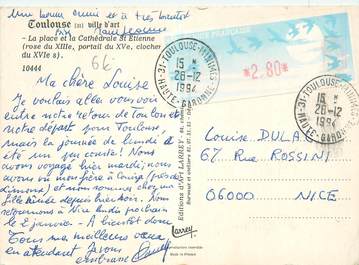 Une bonne année et à très bientôt
Toulouse (31) ville d'art
- La place et la Cathédrale St Etienne
(rose du XIIIe, portail du XVe, clocher
du XVIe s)
10444
66
Ma chère Louise
Je voulais aller vous voir
entre notre retour de Toulon et
notre départ pour Toulouse,
mais la journée de lundi a
été un peu courte! Nous
avons voyagé hier mardi; nous
avons vu mon frère à
et nous sommes chez ma
fille depuis hier soir. Nous
retournons à Nice lundi prochain
le 2 janvier - A bientôt donc
Tous mes meilleurs vœux
en attendant je vous
embrasse
Editions d'Art LARREY
Larrey
31-TOULOUSE-MINIMES
15 H
28-12
1994
HAUTE-GARONNE
*2,80*
31-TOULOUSE-MINIMES
15 H
28-12
1994
HAUTE-GARONNE
Louise DULAC
67 Rue ROSSINI
06000 NICE